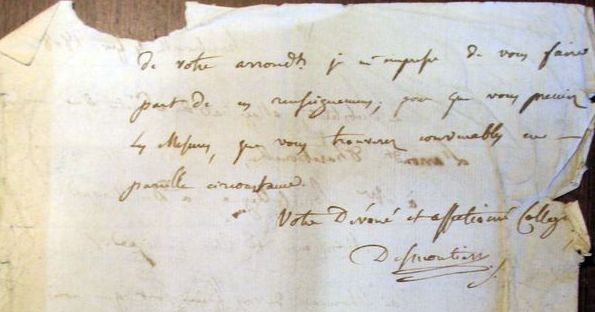 de votre arrondt. je m'empresse de vous faire
part de ces renseignemens, pour que vous preniez
les mesures, que vous trouverez convenables en
pareille circonstance.
Votre Dévoué et affectionné Collegue
Desmoutier